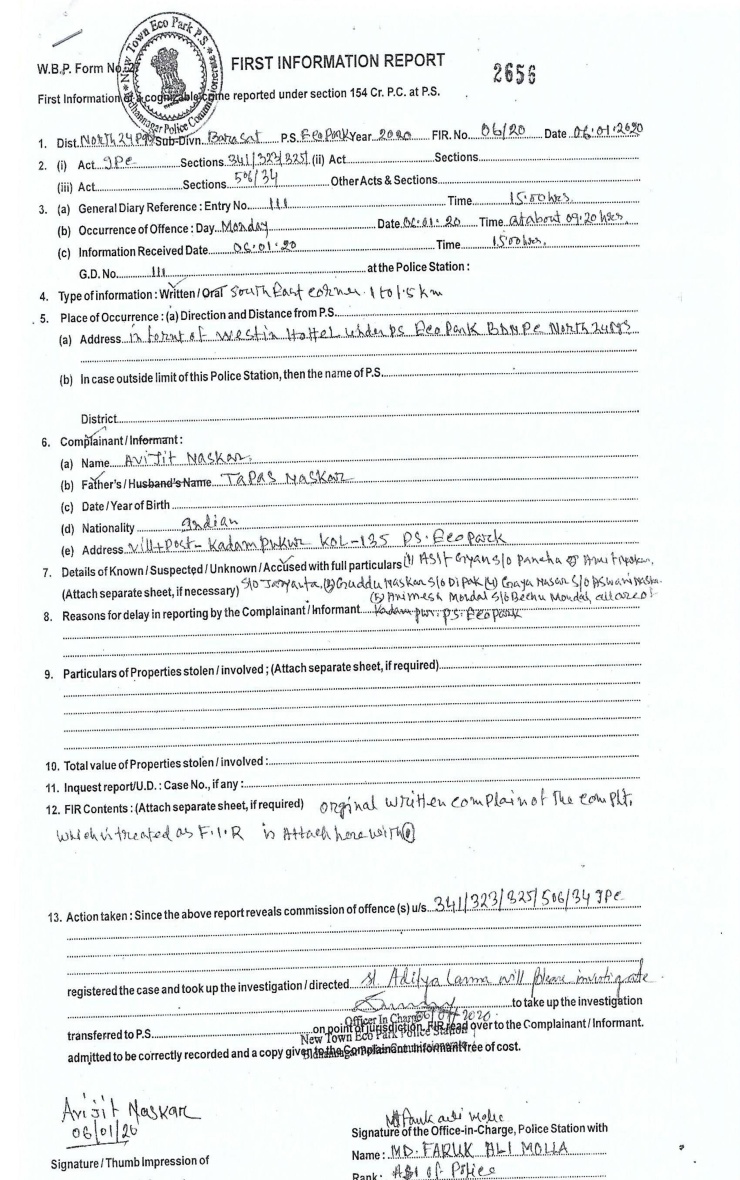 New Town Eco Park P.S.
Bidhannagar Police Commissionerate
W.B.P. Form No. 27
FIRST INFORMATION REPORT
2656
First Information of a cognizable crime reported under section 154 Cr. P.C. at P.S.
1. Dist. North 24 Pgs Sub-Divn. Barasat P.S. Eco Park Year 2020 FIR. No. 06/20 Date 06.01.2020
2. (i) Act IPC Sections 341/323/325/ (ii) Act Sections
(iii) Act Sections 506/34 Other Acts & Sections
3. (a) General Diary Reference : Entry No. 111 Time 15:00 hrs
(b) Occurrence of Offence : Day Monday Date 06.01.20 Time at about 09:20 hrs.
(c) Information Received Date 06.01.20 Time 15:00 hrs.
G.D. No. 111 at the Police Station :
4. Type of information : Written / Oral South East corner 1 to 1.5 km
5. Place of Occurrence : (a) Direction and Distance from P.S.
(a) Address in fornt of Westin Hottel under PS Eco Park BDNPC North 24 Pgs
(b) In case outside limit of this Police Station, then the name of P.S.
District
6. Complainant / Informant :
(a) Name Avijit Naskar
(b) Father's / Husband's Name Tapas Naskar
(c) Date / Year of Birth
(d) Nationality Indian
(e) Address Vill+Post- Kadampukur KOL-135 PS- Eco Park
7. Details of Known / Suspected / Unknown / Accused with full particulars (1) Asit Gyan S/o Pancha
(Attach separate sheet, if necessary) S/o Jayanta, (3) Guddu Naskar S/o Dipak (4) Gaya S/o Aswani
(5) Animesh Mondal S/o Bechu Mondal, all are of
8. Reasons for delay in reporting by the Complainant / Informant Kadampur, P.S- Eco Park
9. Particulars of Properties stolen / involved ; (Attach separate sheet, if required)
10. Total value of Properties stolen / involved :
11. Inquest report/U.D. : Case No., if any :
12. FIR Contents : (Attach separate sheet, if required) orginal written complain of the complt,
which is treated as F.I.R is Attach here with
13. Action taken : Since the above report reveals commission of offence (s) u/s. 341/323/325/506/34 IPC
registered the case and took up the investigation / directed SI Aditya will please investigate
to take up the investigation
06/01/2020
Officer In Charge
transferred to P.S. on point of jurisdiction, FIR read over to the Complainant / Informant.
New Town Eco Park Police Station
admitted to be correctly recorded and a copy given to the Complainant Informant free of cost.
Bidhannagar Police Commissionerate
Avijit Naskar
06/01/20
Signature / Thumb Impression of
Md Faruk ali Molla
Signature of the Office-in-Charge, Police Station with
Name : MD. FARUK ALI MOLLA
Rank : ASI of Police